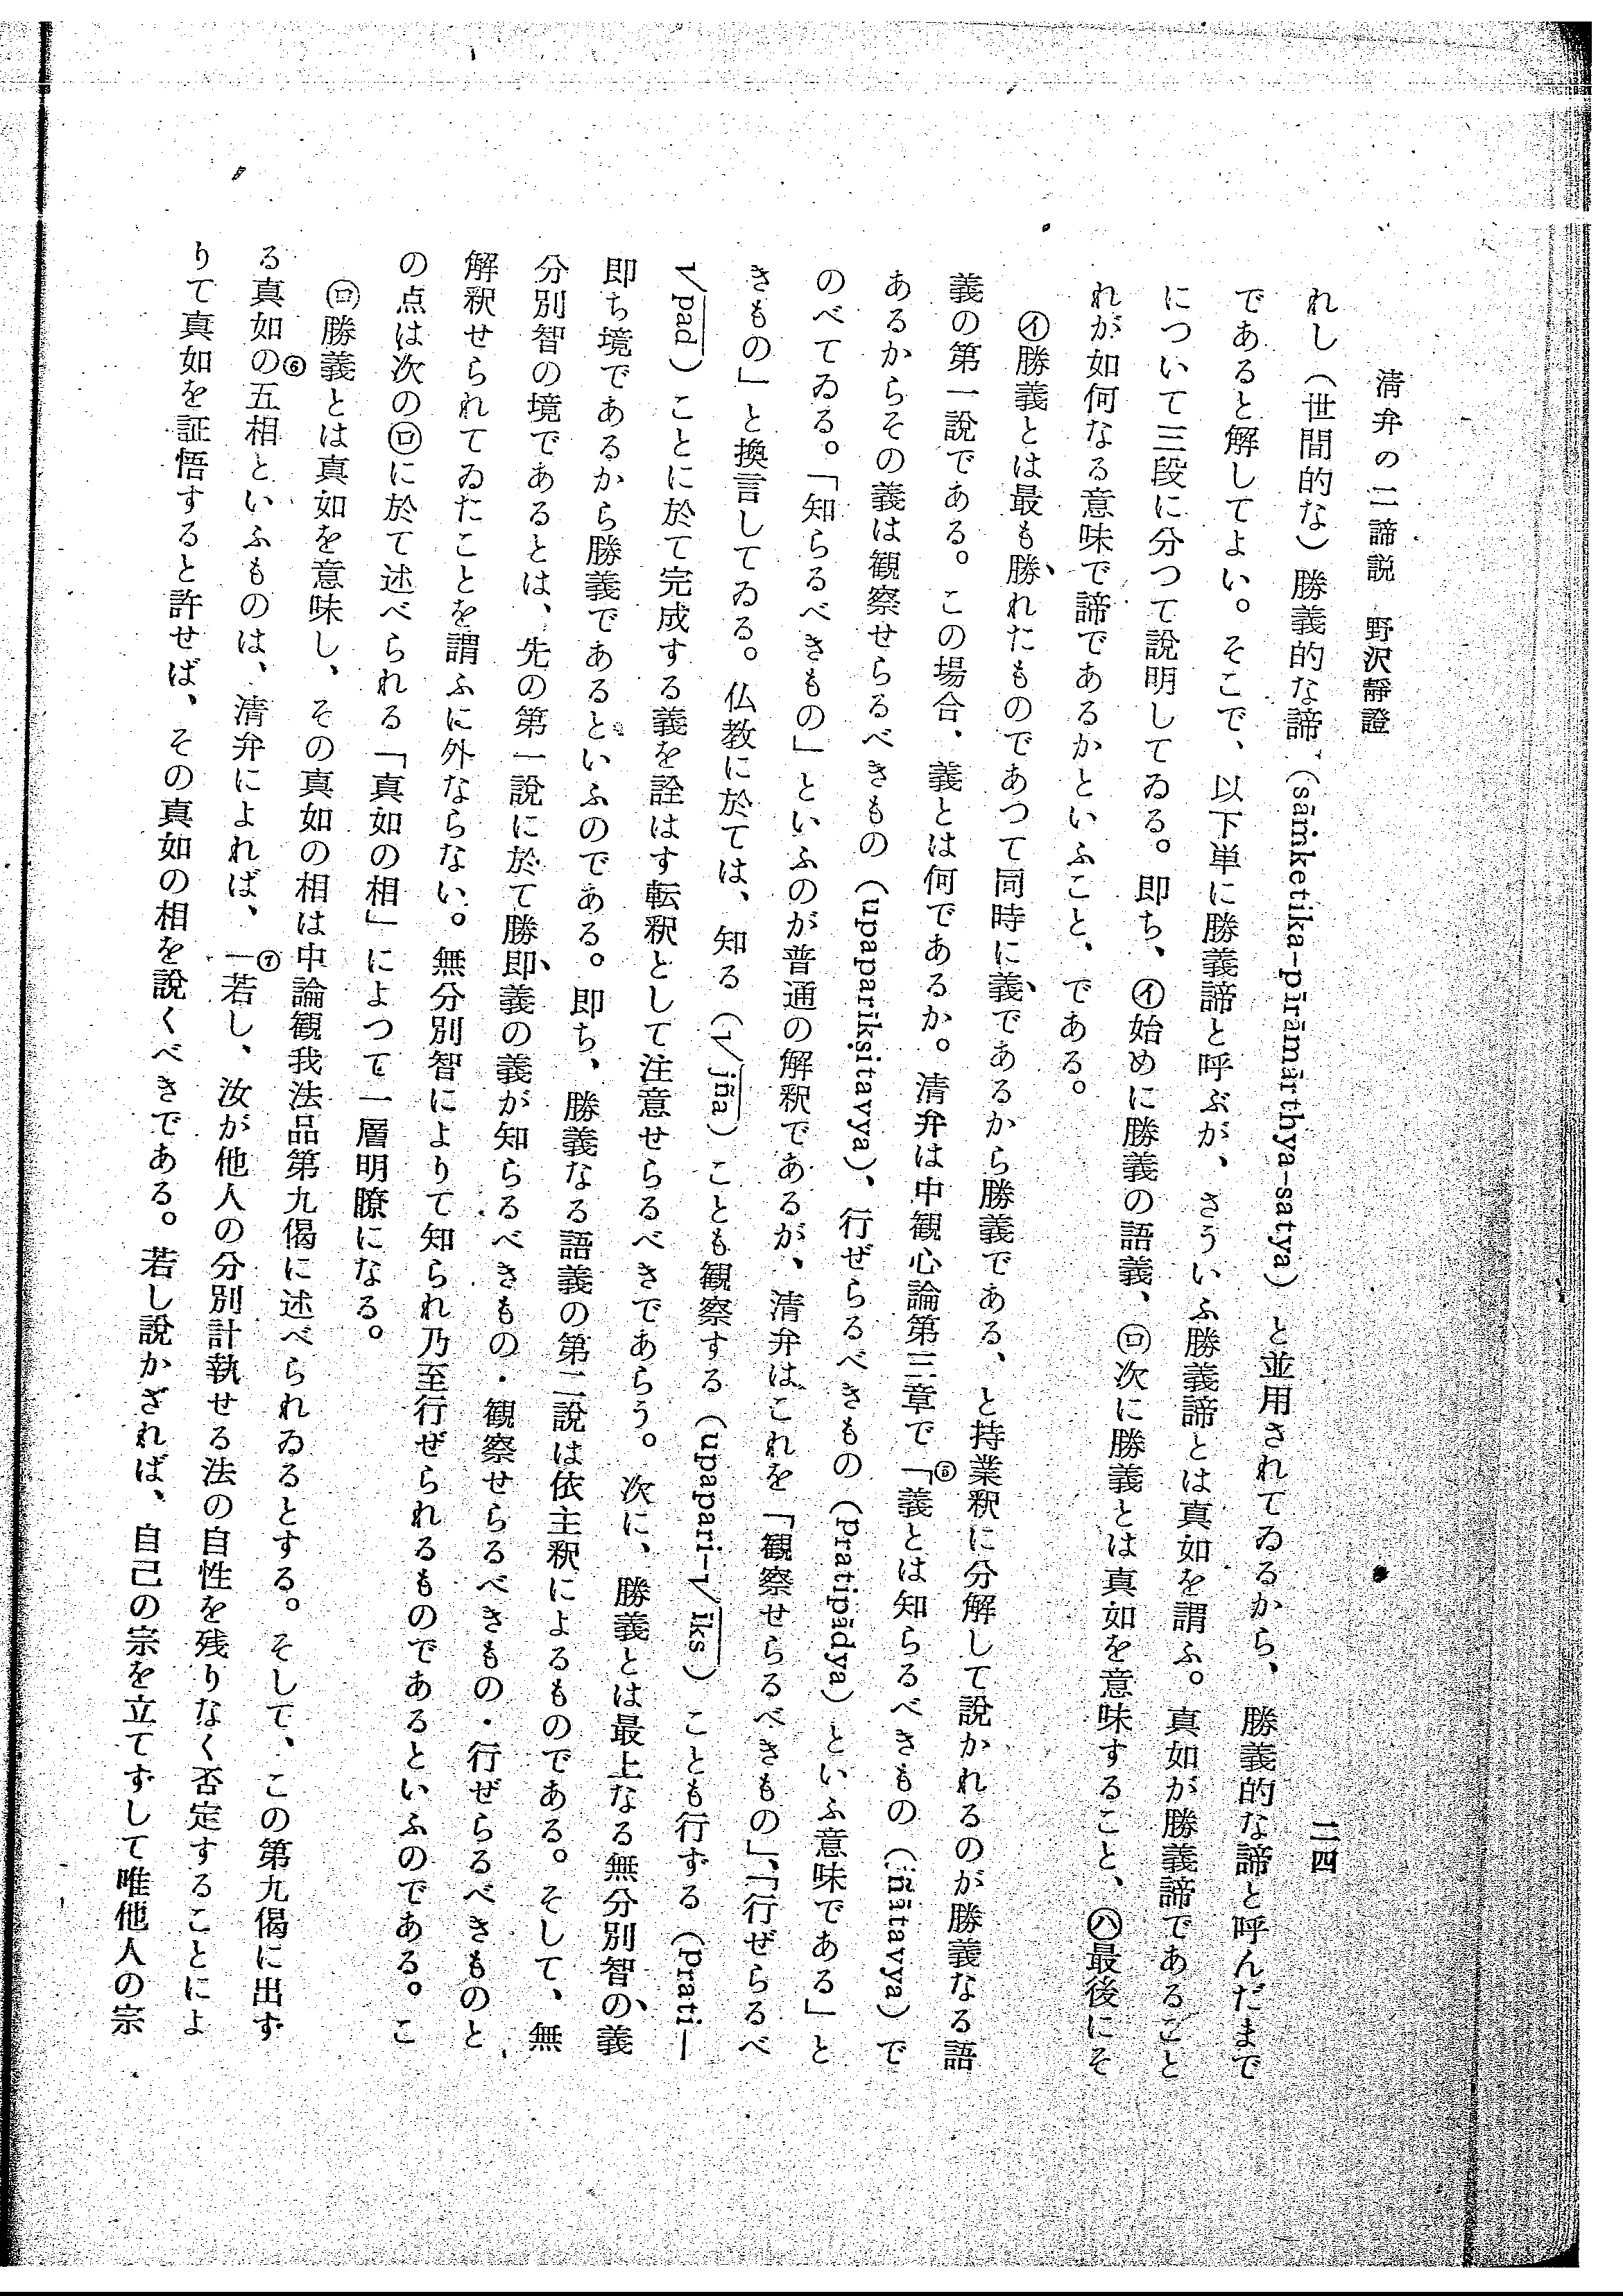 清弁の二諦説　野沢靜證
二四
れし（世間的な）勝義的な諦（sāṁketika-pīrāmārthya-satya）と並用されてゐるから、勝義的な諦と呼んだまで
であると解してよい。そこで、以下単に勝義諦と呼ぶが、さういふ勝義諦とは真如を謂ふ。真如が勝義諦であること
について三段に分つて説明してゐる。即ち、㋑始めに勝義の語義、㋺次に勝義とは真如を意味すること、㋩最後にそ
れが如何なる意味で諦であるかといふこと、である。
㋑勝義とは最も勝れたものであつて同時に義であるから勝義である、と持業釈に分解して説かれるのが勝義なる語
義の第一説である。この場合、義とは何であるか。清弁は中観心論第三章で⑤「義とは知らるべきもの（jñātavya）で
あるからその義は観察せらるべきもの（upaparīkṣitavya）、行ぜらるべきもの（pratipādya）といふ意味である」と
のべてゐる。「知らるべきもの」といふのが普通の解釈であるが、清弁はこれを「観察せらるべきもの」、「行ぜらるべ
きもの」と換言してゐる。仏教に於ては、知る（√jña）ことも観察する（upapari-√īks）ことも行ずる（prati-
√pad）ことに於て完成する義を詮はす転釈として注意せらるべきであらう。次に、勝義とは最上なる無分別智の義
即ち境であるから勝義であるといふのである。即ち、勝義なる語義の第二説は依主釈によるものである。そして、無
分別智の境であるとは、先の第一説に於て勝即義の義が知らるべきもの・観察せらるべきもの・行ぜらるべきものと
解釈せられてゐたことを謂ふに外ならない。無分別智によりて知られ乃至行ぜられるものであるといふのである。こ
の点は次の㋺に於て述べられる「真如の相」によつて一層明瞭になる。
㋺勝義とは真如を意味し、その真如の相は中論観我法品第九偈に述べられゐるとする。そして、この第九偈に出ず
る真如の⑥五相といふものは、清弁によれば、⑦「若し、汝が他人の分別計執せる法の自性を残りなく否定することによ
りて真如を証悟すると許せば、その真如の相を説くべきである。若し説かざれば、自己の宗を立てずして唯他人の宗